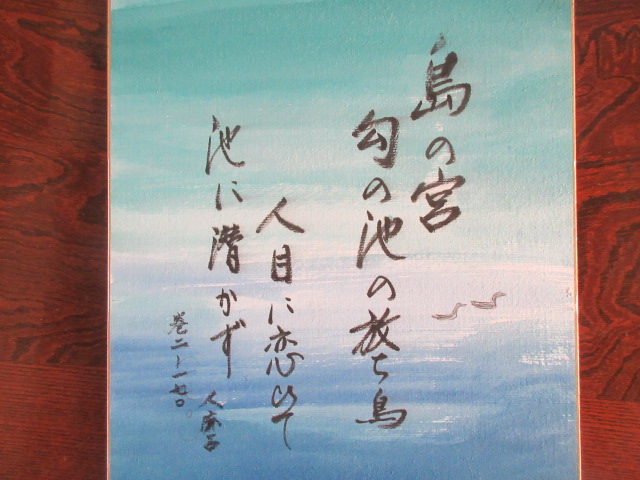 島の宮
勾の池の放ち鳥
人目に恋ひて
池に潜かず
巻二-一七〇